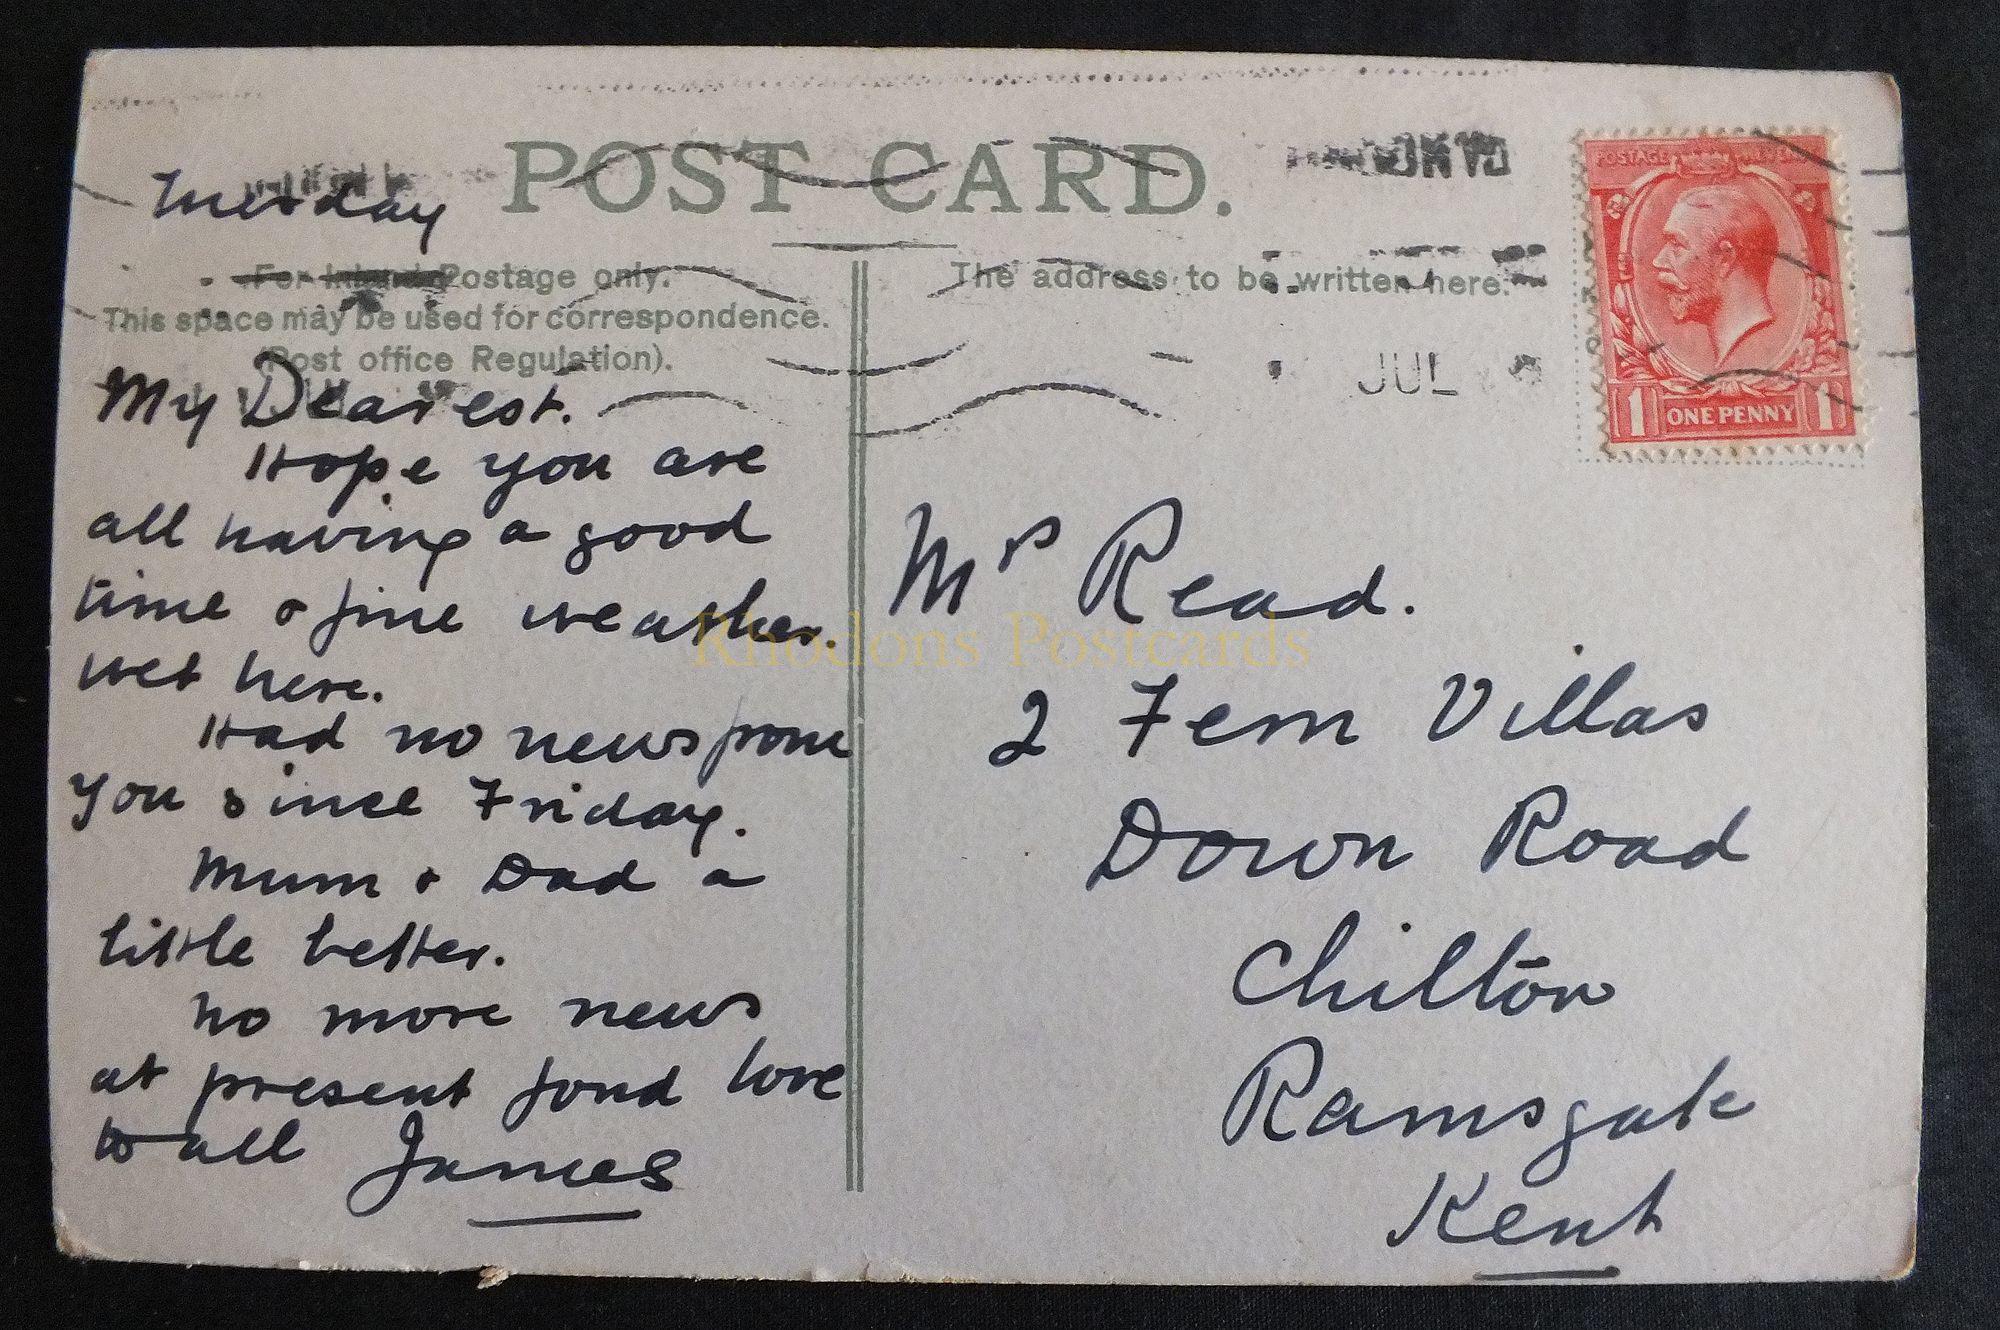 POST CARD.
Tuesday
For Inland Postage only.
This space may be used for correspondence.
(Post office Regulation).
The address to be written here.
JUL
POSTAGE
1 ONE PENNY 1
My Dearest.
Hope you are
all having a good
time & fine weather.
wet here.
Had no news from
you since Friday.
Mum & Dad a
little better.
No more news
at present fond love
to all James
Mrs Read.
2 Fern Villas
Down Road
Chilton
Ramsgate
Kent
Rhodons Postcards